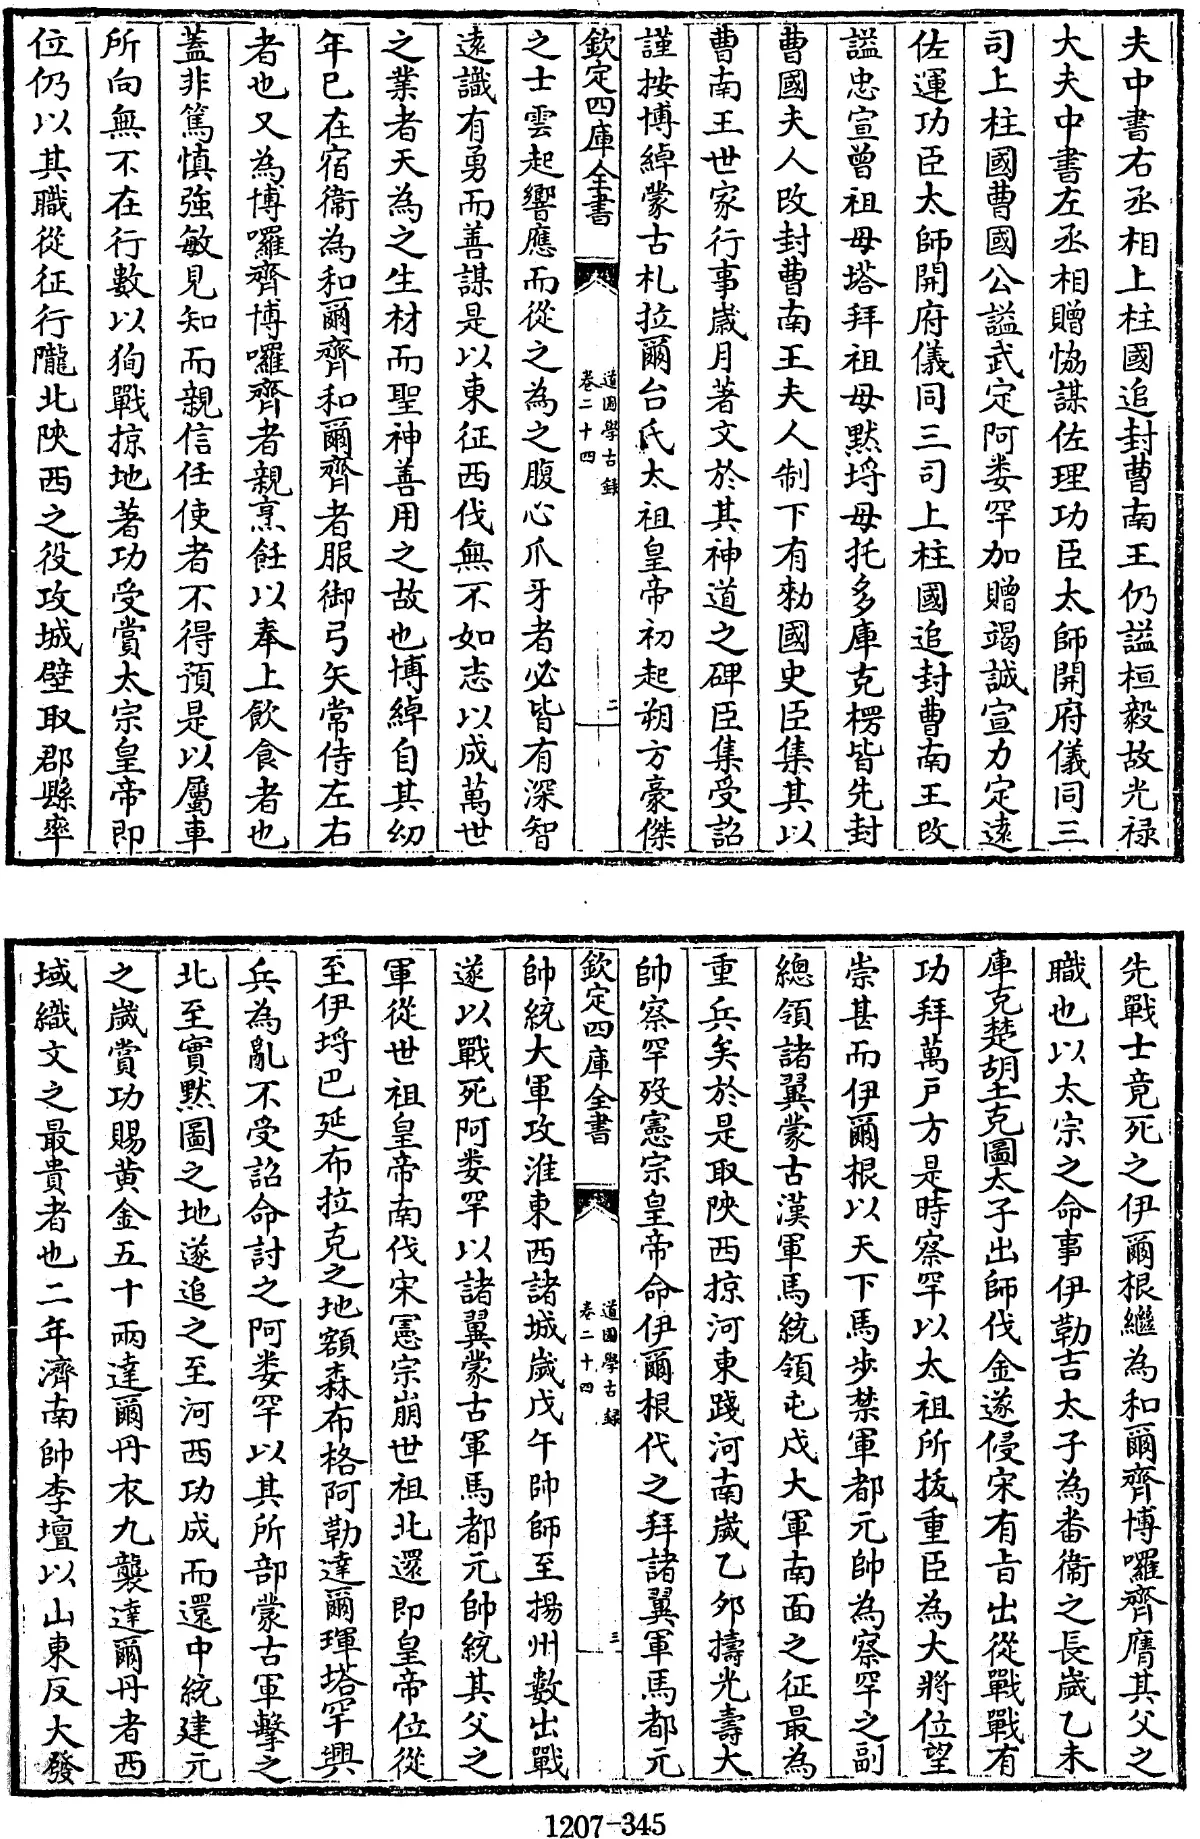 夫中書右丞相上柱國追封曹南王仍謚桓毅故光禄
大夫中書左丞相贈恊謀佐理功臣太師開府儀同三
司上柱國曹國公謚武定阿婁罕加贈竭誠宣力定遠
佐運功臣太師開府儀同三司上柱國追封曹南王改
謚忠宣曾祖母塔拜祖母默埒母托多庫克楞皆先封
曹國夫人改封曹南王夫人制下有勅國史臣集其以
曹南王世家行事歳月著文於其神道之碑臣集受詔
謹按博綽蒙古札拉爾台氏太祖皇帝初起朔方豪傑
欽定四庫全書
道園學古録
卷二十四
二
之士雲起響應而從之為之腹心爪牙者必皆有深智
遠識有勇而善謀是以東征西伐無不如志以成萬世
之業者天為之生材而聖神善用之故也博綽自其幼
年已在宿衞為和爾齊和爾齊者服御弓矢常侍左右
者也又為博囉齊博囉齊者親烹飪以奉上飲食者也
蓋非篤慎強敏見知而親信任使者不得預是以屬車
所向無不在行數以狥戰掠地著功受賞太宗皇帝即
位仍以其職從征行隴北陜西之役攻城壁取郡縣率
先戰士竟死之伊爾根繼為和爾齊博囉齊膺其父之
職也以太宗之命事伊勒吉太子為畨衞之長歲乙未
庫克楚胡土克圖太子出師伐金遂侵宋有旨出從戰戰有
功拜萬戶方是時察罕以太祖所拔重臣為大將位望
崇甚而伊爾根以天下馬步禁軍都元帥為察罕之副
總領諸翼蒙古漢軍馬統領屯戍大軍南面之征最為
重兵矣於是取陜西掠河東踐河南歲乙夘擣光壽大
帥察罕歿憲宗皇帝命伊爾根代之拜諸翼軍馬都元
欽定四庫全書
道園學古録
卷二十四
三
帥統大軍攻淮東西諸城歲戊午帥師至揚州數出戰
遂以戰死阿婁罕以諸翼蒙古軍馬都元帥統其父之
軍從世祖皇帝南伐宋憲宗崩世祖北還即皇帝位從
至伊埒巴延布拉克之地額森布格阿勒達爾琿塔罕興
兵為亂不受詔命討之阿婁罕以其所部蒙古軍擊之
北至實默圖之地遂追之至河西功成而還中統建元
之歲賞功賜黄金五十兩達爾丹衣九襲達爾丹者西
域織文之最貴者也二年濟南帥李壇以山東反大發
1207-345